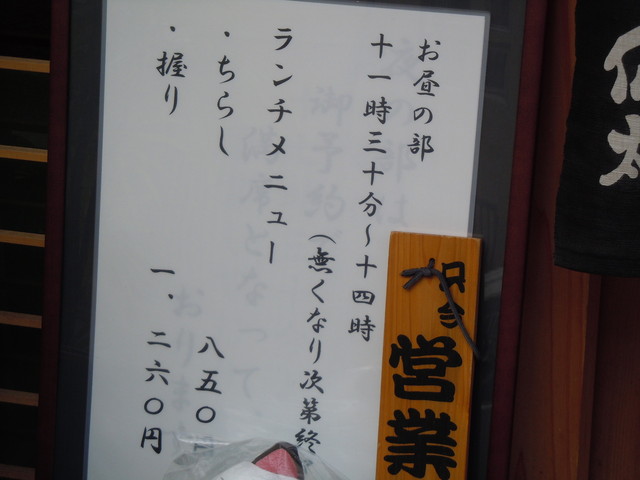 お昼の部
十一時三十分～十四時
（無くなり次第終
ランチメニュー
・ちらし 八五〇円
・握り 一、二六〇円
只今
営業